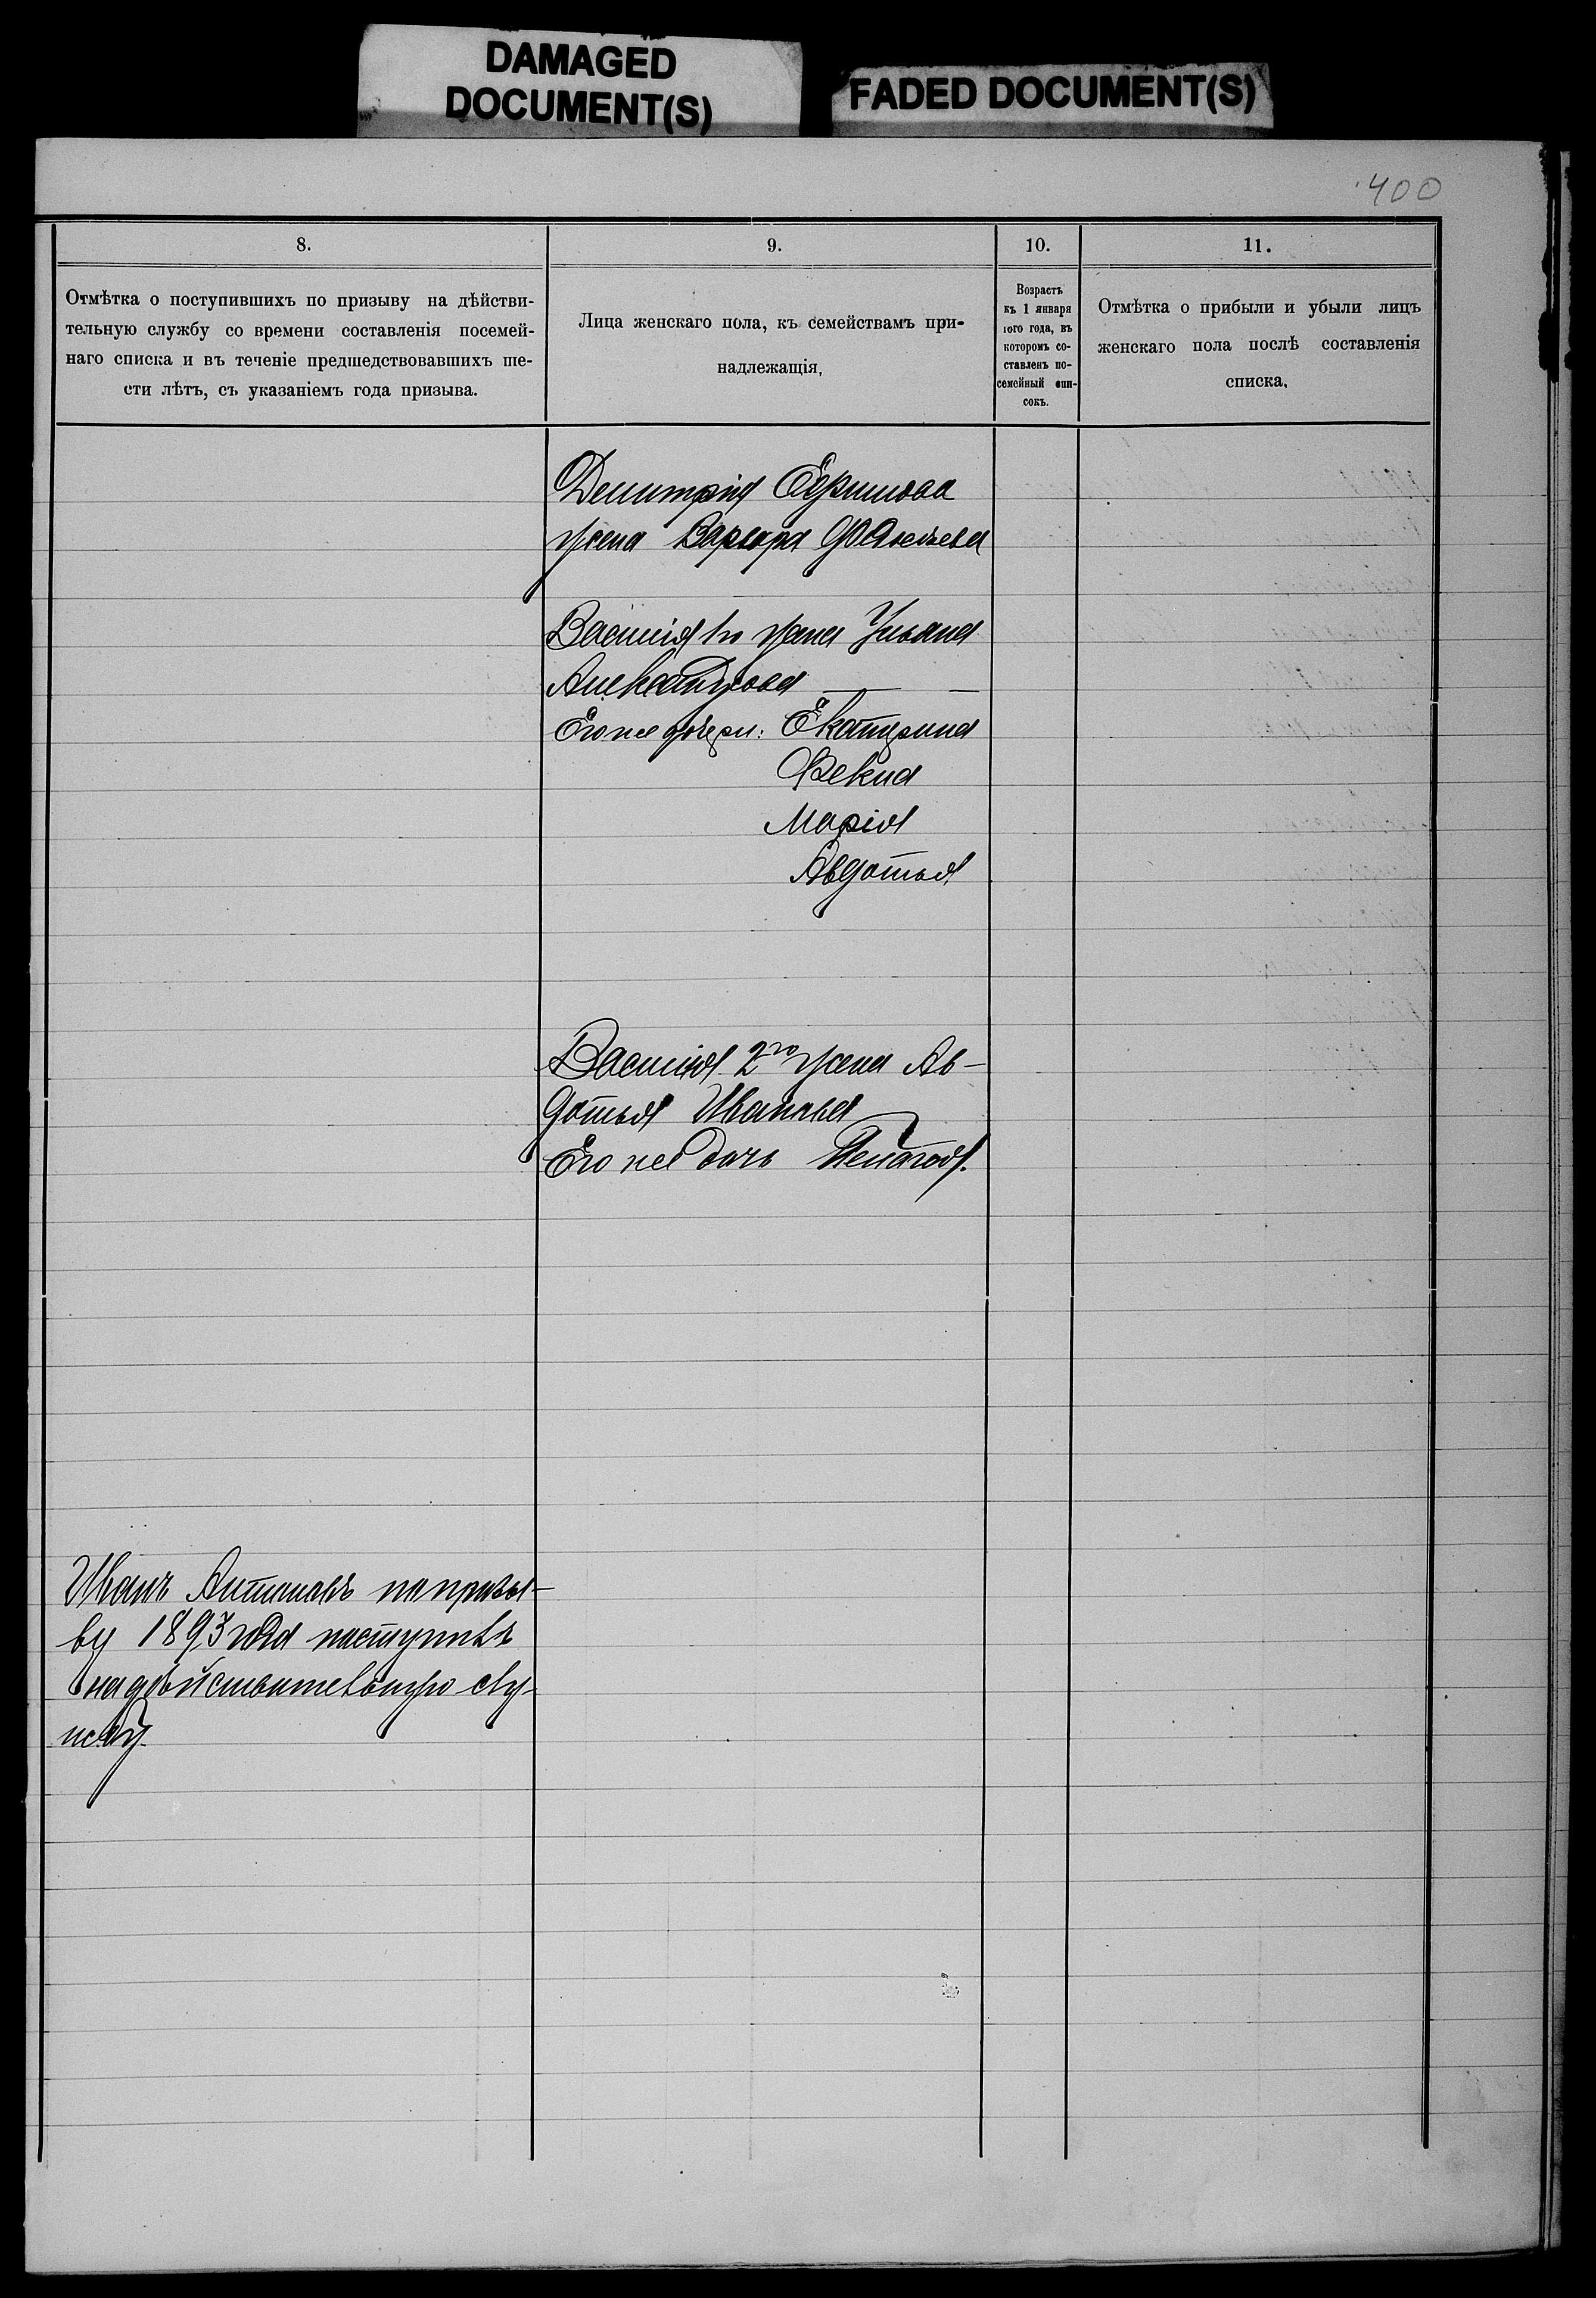 DAMAGED
DOCUMENT(S)
FADED DOCUMENT(S)
400
8.
Отмѣтка о поступившихъ по призыву на дѣйстви-
тельную службу со времени составленія посемей-
наго списка и въ теченіе предшедствовавшихъ ше-
сти лѣтъ, съ указаніемъ года призыва.
9.
Лица женскаго пола, къ семействамъ при-
надлежащія,
10.
Возрастъ
къ 1 января
того года, въ
которомъ со-
ставленъ по-
семейный спи-
сокъ.
11.
Отмѣтка о прибыли и убыли лицъ
женскаго пола послѣ составленія
списка,
Дмитрія
жена Варвара
Василія 1го жена Ульяна
Александрова
Его же дочери: Екатерина
Фекла
Марія
Авдотья
Василія 2го жена Ав-
дотья Иванова
Его же дочь Пелагея.
Иванъ Антоновъ по призы-
ву 1893 года поступилъ
на дѣйствительную слу-
жбу.